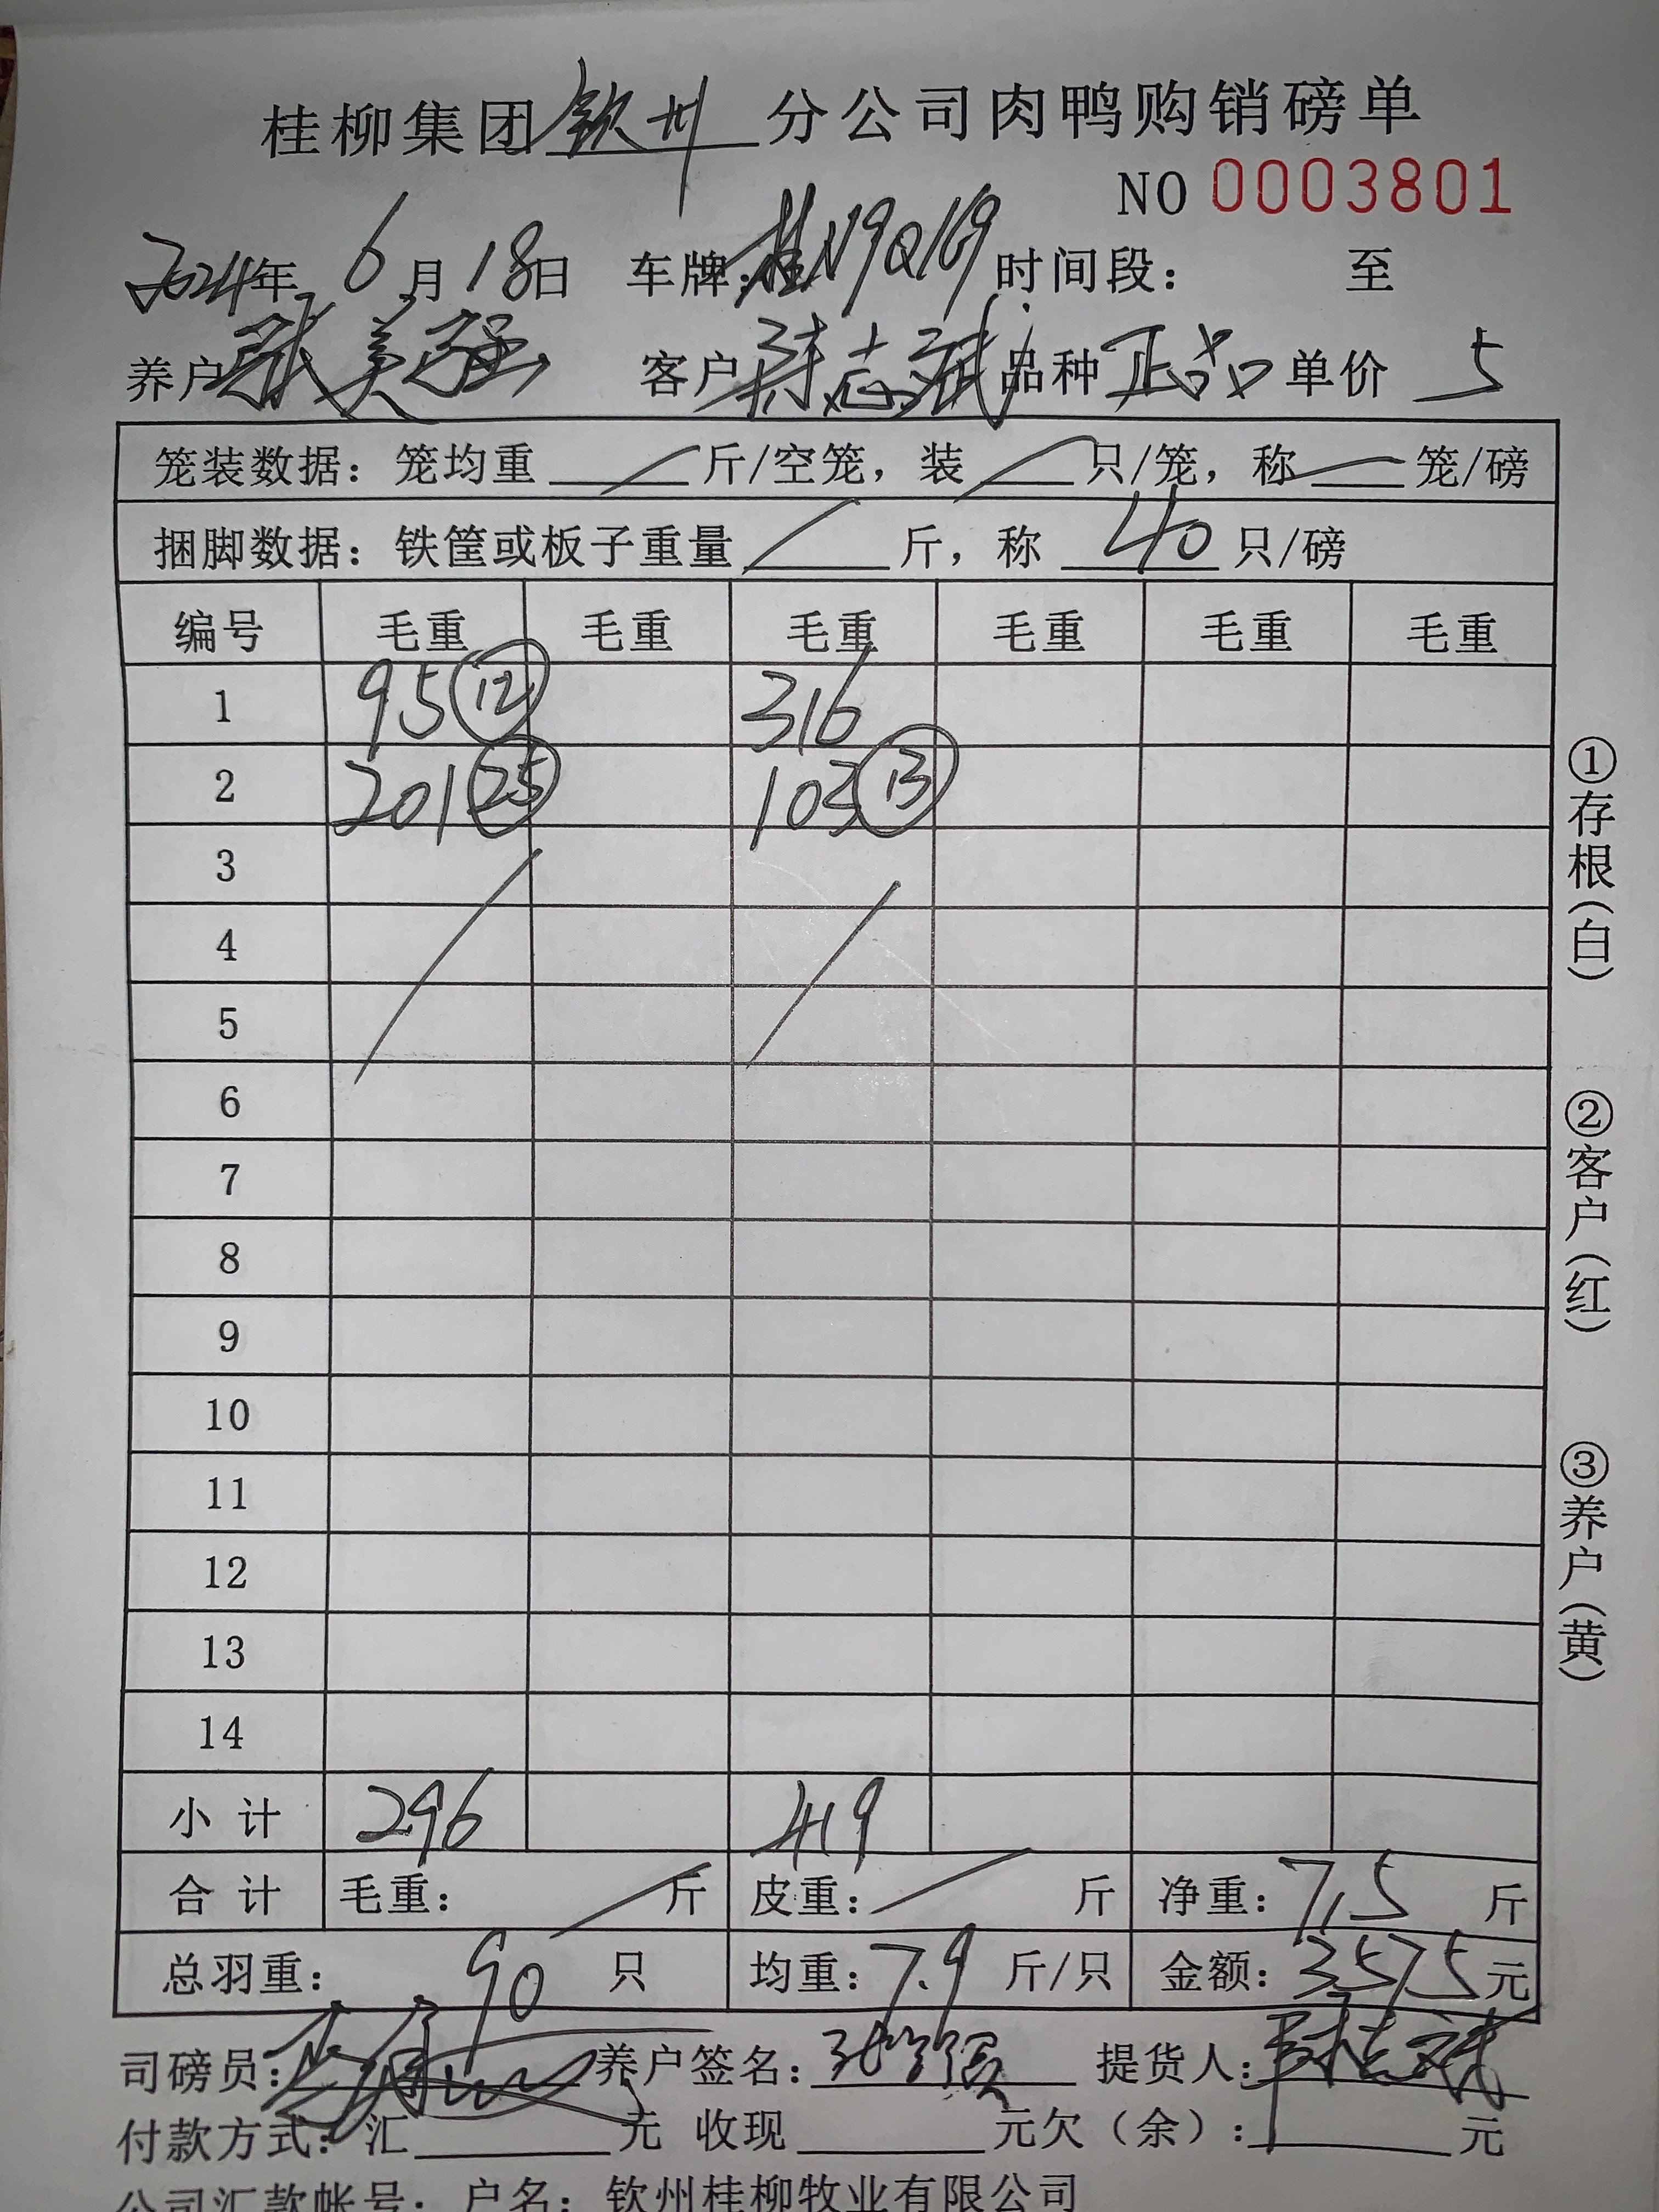 桂柳集团钦州分公司肉鸭购销磅单
NO 0003801
2024年 6月18日 车牌:桂N9Q169 时间段: 至
养户张美强 客户陈志斌 品种正品 单价 5
笼装数据: 笼均重 / 斤/空笼, 装 / 只/笼, 称 — 笼/磅
捆脚数据: 铁筐或板子重量 / 斤, 称 40 只/磅
编号 毛重 毛重 毛重 毛重 毛重 毛重
1 95 ⑫ 316
2 201 ㉕ 103 ⑬
3
4
5
6
7
8
9
10
11
12
13
14
小计 296 419
合计 毛重: / 斤 皮重: / 斤 净重: 715 斤
总羽重: 90 只 均重: 7.9 斤/只 金额: 3575元
司磅员: 养户签名: 张美强 提货人: 陈志斌
付款方式: 汇 元 收现 元欠(余): 元
公司汇款帐号: 户名: 钦州桂柳牧业有限公司
①存根(白)
②客户(红)
③养户(黄)